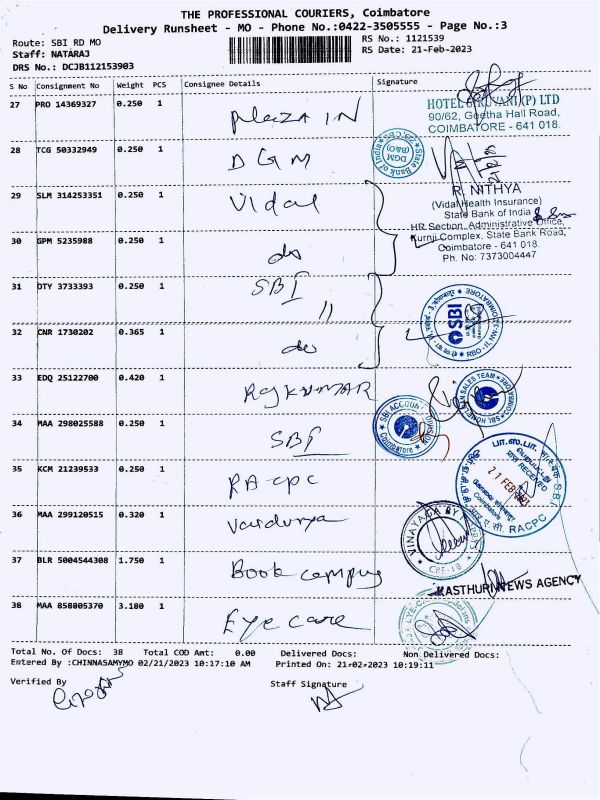 THE PROFESSIONAL COURIERS, Coimbatore
Delivery Runsheet - MO - Phone No.:0422-3505555 - Page No.:3
Route: SBI RD MO
RS No.: 1121539
Staff: NATARAJ
RS Date: 21-Feb-2023
DRS No.: DCJB112153903
S No Consignment No Weight PCS Consignee Details Signature
27 PRO 14369327 0.250 1 Plaza IN
HOTEL (P) LTD
90/62, Geetha Hall Road,
COIMBATORE - 641 018.
28 TCG 50332949 0.250 1 DGM
State Bank of India
DGM
(B&O)
29 SLM 314253351 0.250 1 Vidal
R. NITHYA
(Vidal Health Insurance)
State Bank of India
HR Section, Administrative Office,
Kurnji Complex, State Bank Road,
Coimbatore - 641 018.
Ph. No: 7373004447
30 GPM 5235988 0.250 1 do
31 DTY 3733393 0.250 1 SBI
11
SBI
COIMBATORE
32 CNR 1730202 0.365 1 do
33 EDQ 25122700 0.420 1 RAJKUMAR
34 MAA 298025588 0.250 1 SBI
SBI ACCOUNT
Coimbatore
35 KCM 21239533 0.250 1 RACPC
பா.ஸ்.பா.
S.B.I.
RECEIVED
21 FEB 2023
Coimbatore
RACPC
36 MAA 299120515 0.320 1 Vaidurya
VINAYAGA
CBE-18
37 BLR 5004544308 1.750 1 Book campus
KASTHURI NEWS AGENCY
38 MAA 858805370 3.180 1 Eye care
Total No. Of Docs: 38 Total COD Amt: 0.00 Delivered Docs: Non Delivered Docs:
Entered By :CHINNASAMYMO 02/21/2023 10:17:10 AM Printed On: 21-02-2023 10:19:11
Verified By
Staff Signature